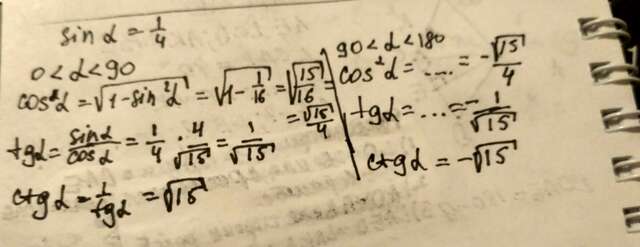 sin α = 1/4
0 < α < 90
cos²α = √(1 - sin²α) = √(1 - 1/16) = √(15/16) =
= √15/4
tg α = sin α/cos α = 1/4 · 4/√15 = 1/√15
ctg α = 1/tg α = √15
90 < α < 180
cos²α = .... = -√15/4
tg α = ... = -1/√15
ctg α = -√15